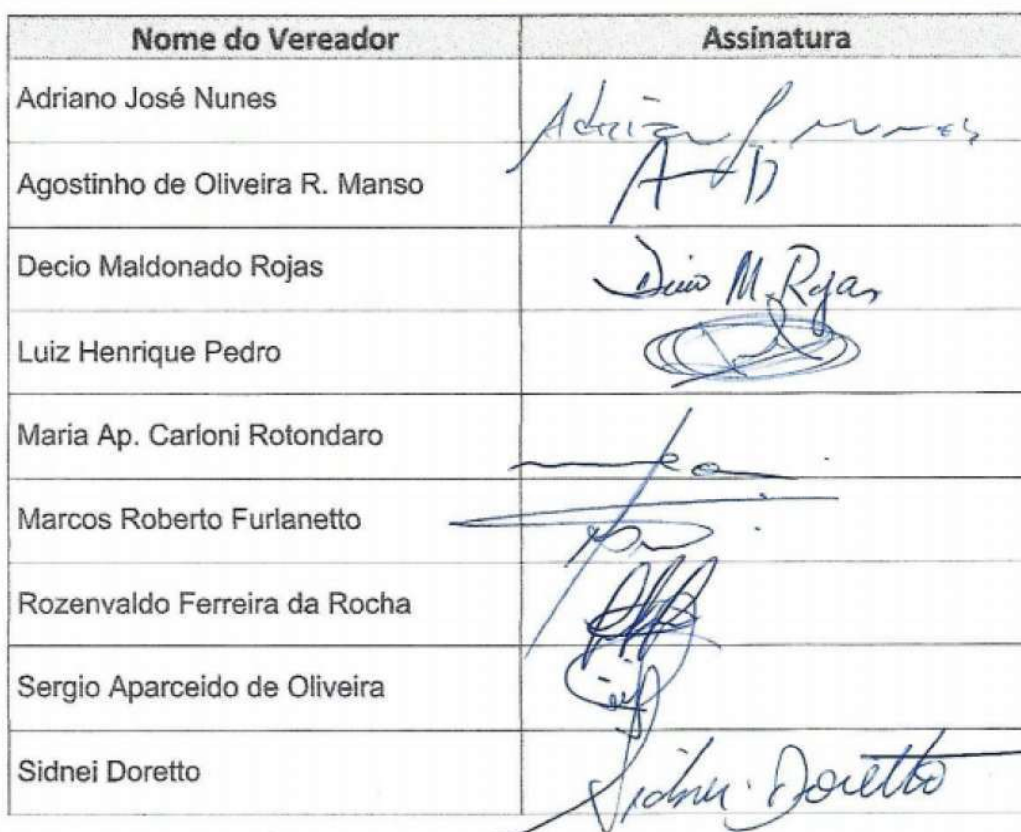 Nome do Vereador Assinatura
Adriano José Nunes Adriano J. Nunes
Agostinho de Oliveira R. Manso
Decio Maldonado Rojas Decio M. Rojas
Luiz Henrique Pedro
Maria Ap. Carloni Rotondaro
Marcos Roberto Furlanetto
Rozenvaldo Ferreira da Rocha
Sergio Aparceido de Oliveira
Sidnei Doretto Sidnei Doretto